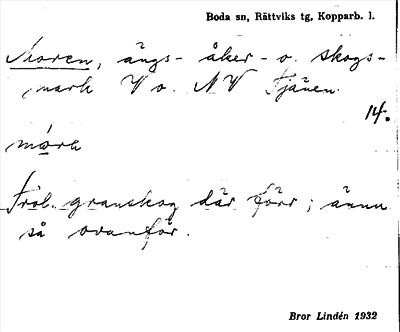 Boda sn, Rättviks tg, Kopparb. l.
Moren, ängs- åker- o. skogs-
mark V o. NV Tjänen.
14.
Trol. granskog där förr; ännu
så ovanför.
Bror Lindén 1932